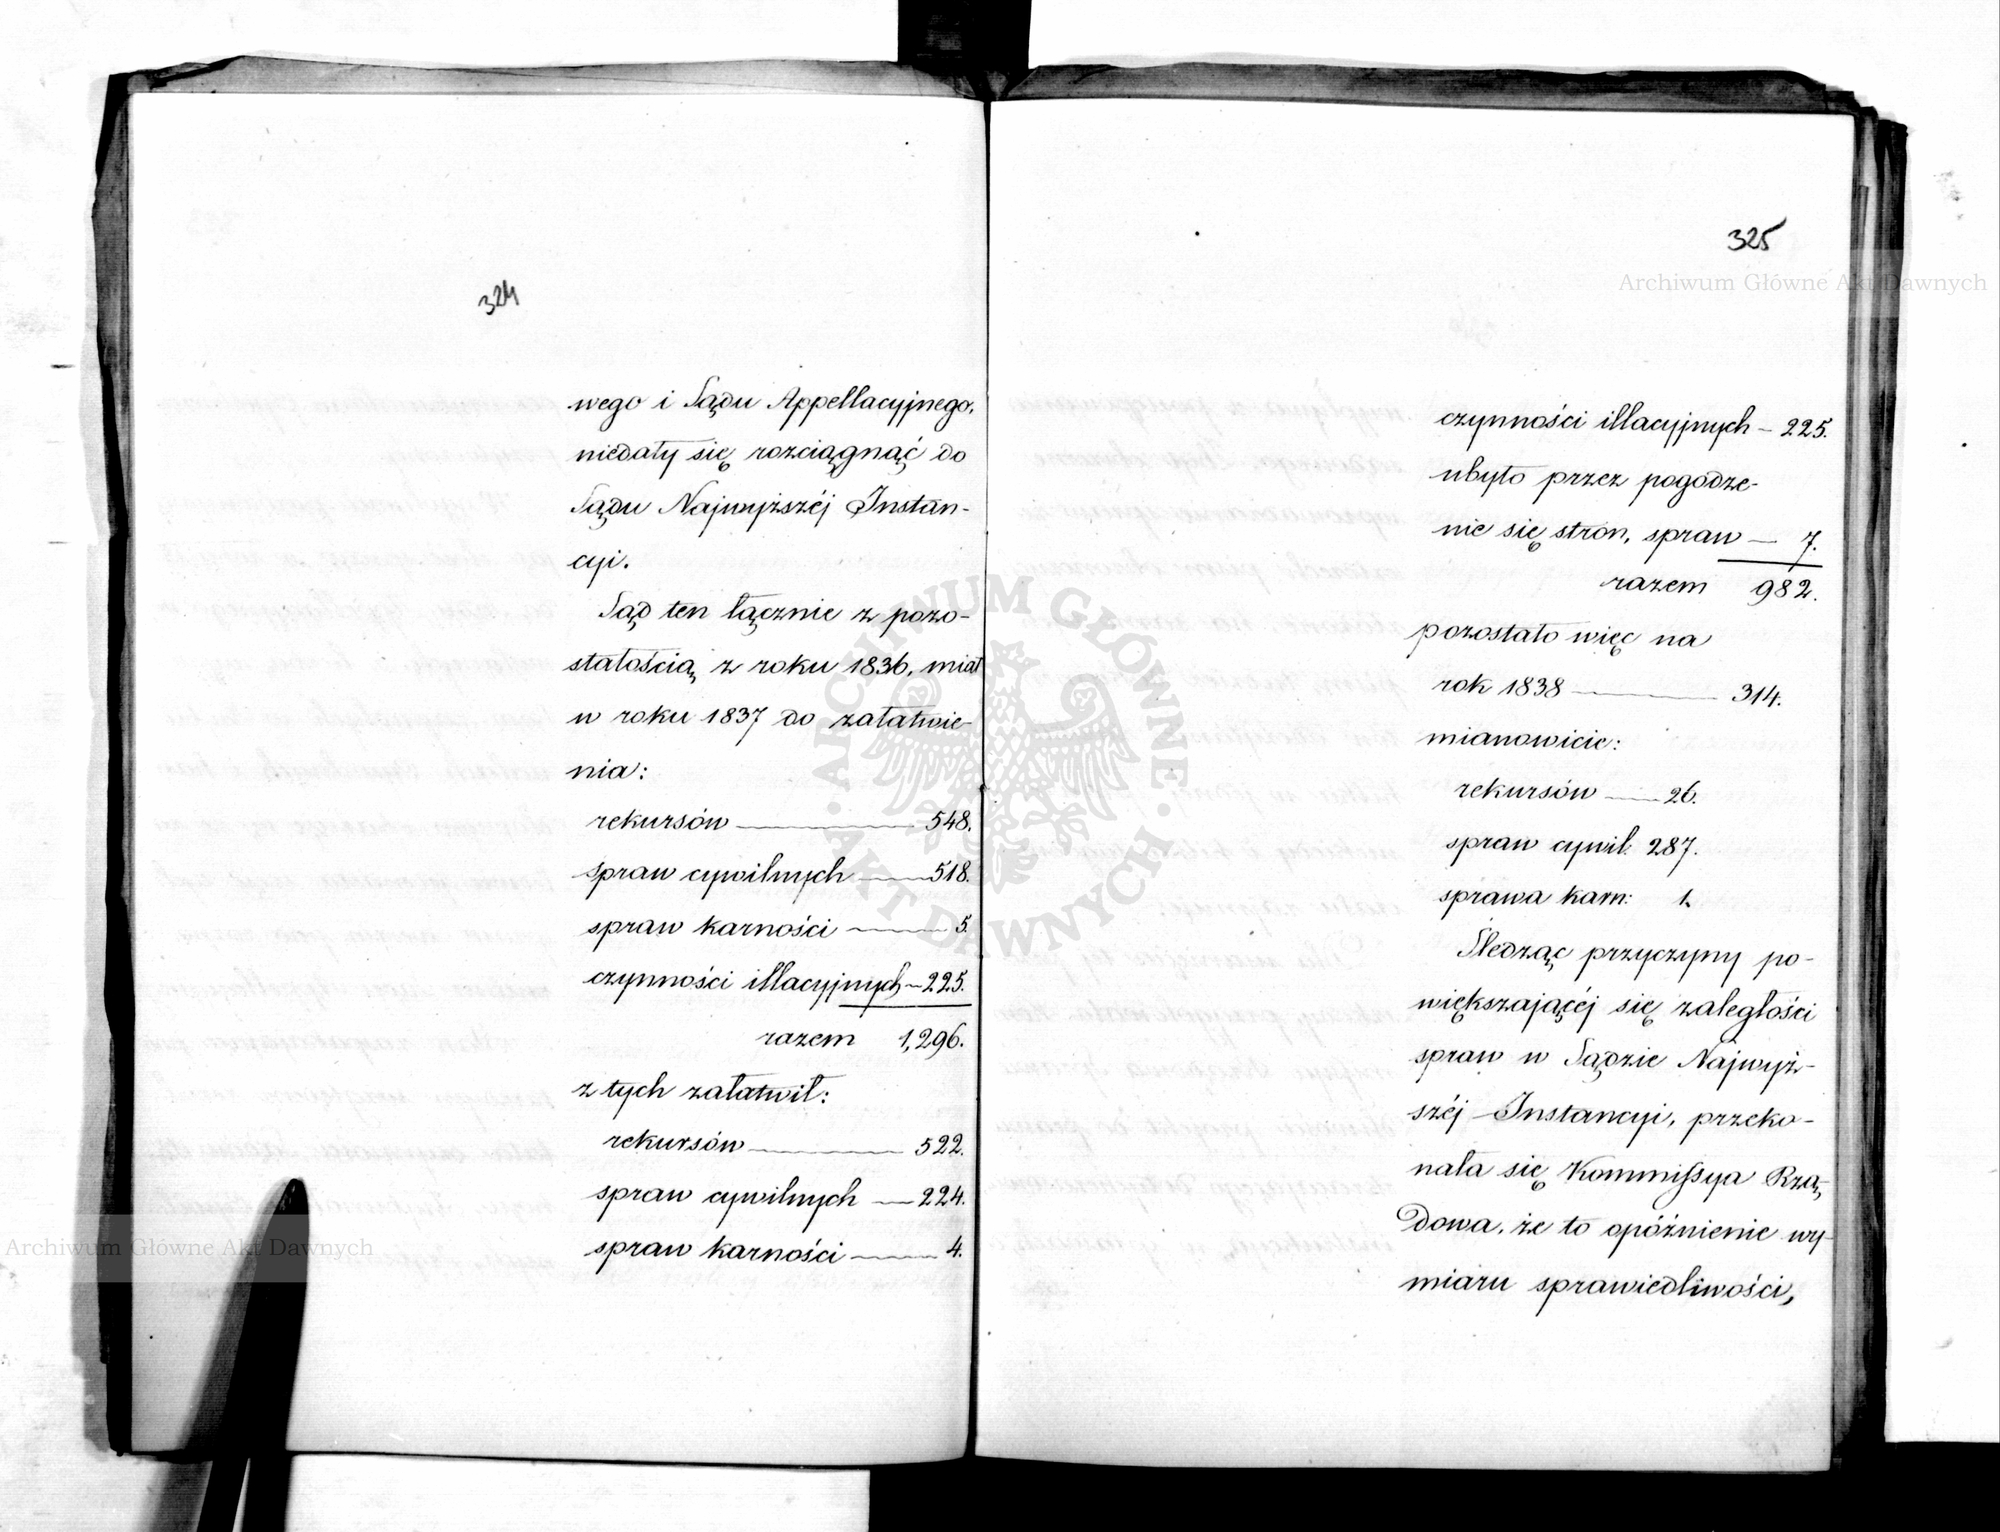 324
wego i Sądu Appellacyjnego,
niedały się rozciągnąć do
Sądu Najwyższéj Instan-
cyi.
Sąd ten łącznie z pozo-
stałością z roku 1836, miał
w roku 1837 do załatwie-
nia:
rekursów 548.
spraw cywilnych 518.
spraw karności 5.
czynności illacyjnych 225.
razem 1,296.
z tych załatwił:
rekursów 522.
spraw cywilnych 224.
spraw karności 4.
325
czynności illacyjnych 225.
ubyło przez pogodze-
nie się stron, spraw 7.
razem 982.
pozostało więc na
rok 1838 314.
mianowicie:
rekursów 26.
spraw cywil: 287.
sprawa karn: 1.
Śledząc przyczyny po-
większającéj się zaległości
spraw w Sądzie Najwyż-
széj Instancyi, przeko-
nała się Kommissya Rzą-
dowa, że to opóźnienie wy-
miaru sprawiedliwości,
Archiwum Główne Akt Dawnych
Archiwum Główne Akt Dawnych
ARCHIWUM GŁÓWNE · AKT DAWNYCH ·